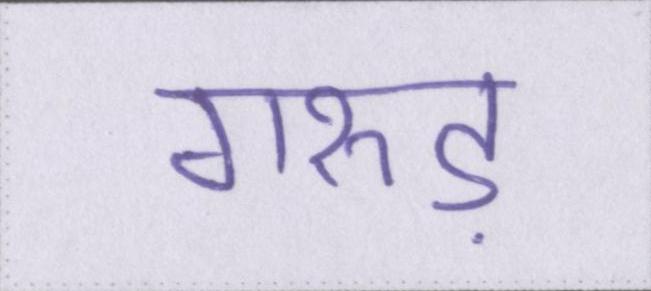 गरुड़